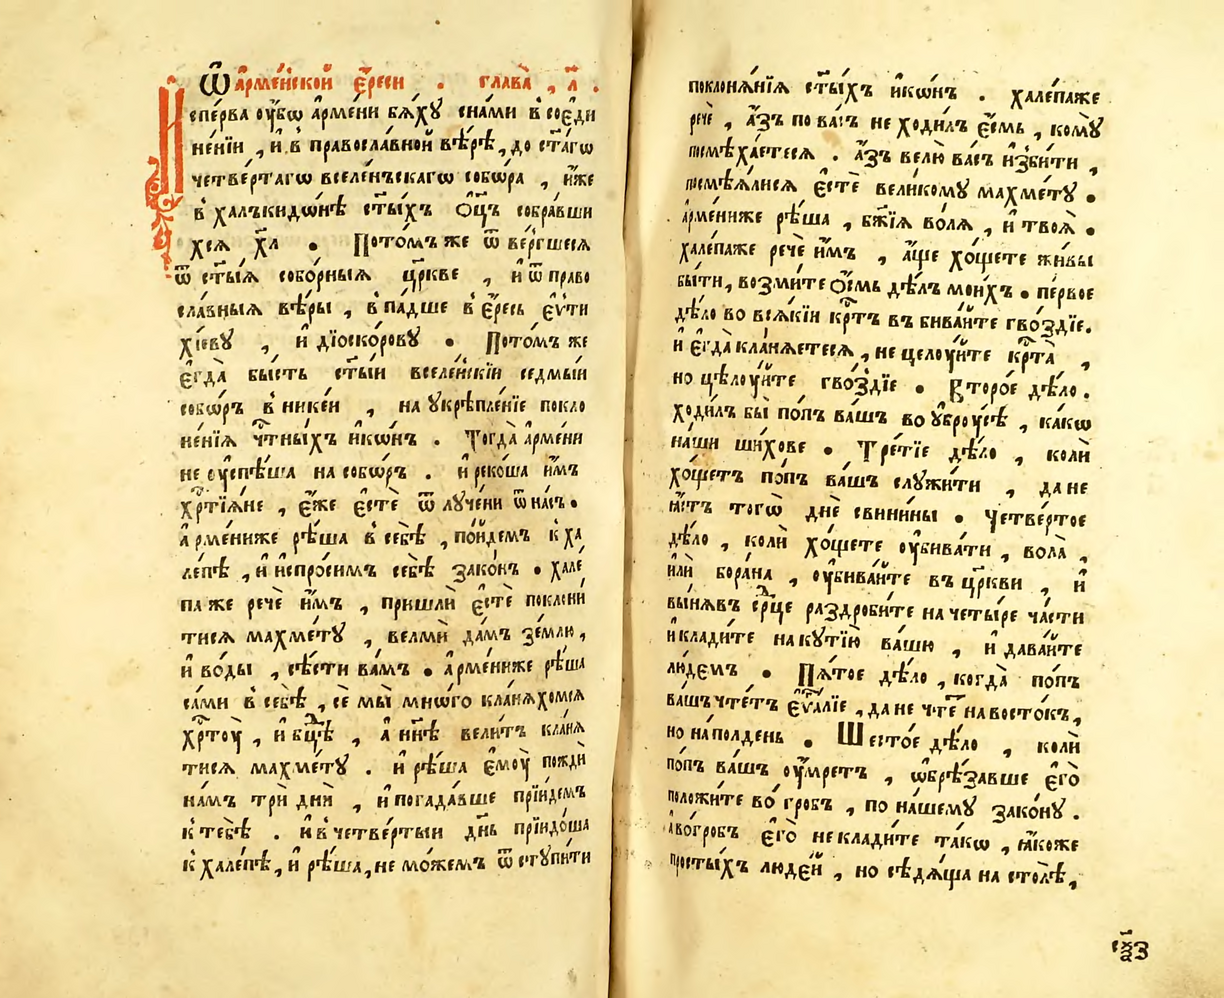 Ѿ а҆рме́нской є҆́реси . глава̀ , л҃ .
И҆сперва ᲂу҆́бѡ а҆рме́ни бѧ́хꙋ сна́ми в̾ соє҆ди
не́нїи , и҆ в̾ правосла́вной вѣ́рѣ , до ст҃а́гѡ
четве́ртагѡ вселе́нъскагѡ собѡ́ра , и҆́же
в̾ халъкидѡ́нѣ ст҃ы́хъ ѻ҆ц҃ъ собра́вши
хсѧ х҃л . Пото́мъ же ѿ ве́ргшесѧ
ѿ ст҃ы́ѧ собо́рныѧ цр҃кве , и҆ ѿ право
сла́вныѧ вѣ́ры , в̾ па́дше в̾ є҆́ресь є҆ѵти
хі́евꙋ , и҆ дїоско́ровꙋ . Пото́мъ же
є҆гда̀ бы́сть ст҃ы́и вселе́нскїи седмы́и
собѡ́ръ в̾ нике́и , на ꙋ҆крѣпле́нїе покло
не́нїѧ чт҃ны́хъ и҆кѡ́нъ . Тогда̀ а҆рме́ни
не ᲂу҆спѣ́ша на собѡ́ръ . и҆ реко́ша и҆̀мъ
хр҃тїѧ́не , є҆́же є҆стѐ ѿ лꙋче́ни ѿ на́съ .
А҆рме́ниже рѣ́ша в̾ себѣ̀ , по́йдемъ к̾ ха
ле́пѣ , и҆ испро́симъ себѣ̀ зако́нъ . хале́
па же речѐ и҆̀мъ , пришлѝ є҆стѐ поклони́
тисѧ махме́тꙋ , велмѝ да́мъ зе́млю ,
и҆ во́ды , сѣ́сти ва́мъ . а҆рме́ниже рѣ́ша
са́ми в̾ себѣ̀ , сѐ мы̀ мно́гѡ кла́нѧхомсѧ
хр҃тоу̀ , и҆ бц҃ѣ , а҆ нн҃ѣ вели́тъ кла́нѧ
тисѧ махме́тꙋ . и҆ рѣ́ша є҆моу̀ пождѝ
на́мъ трѝ днѝ , и҆ погада́вше прїи́демъ
к̾ тебѣ̀ . и҆ в̾ четве́ртыи дн҃ь прїидо́ша
к̾ хале́пѣ , и҆ рѣ́ша , не мо́жемъ ѿ стꙋпи́ти
поклонѧ́нїѧ ст҃ы́хъ и҆кѡ́нъ . хале́паже
речѐ , а҆́зъ по ва́съ не ходи́лъ є҆́смь , комꙋ̀
посмѣха́етесѧ . а҆́зъ велю̀ ва́съ и҆зби́ти ,
посмѣѧ́лисѧ є҆стѐ вели́комꙋ махме́тꙋ .
а҆рме́ниже рѣ́ша , бж҃їѧ во́лѧ , и҆ твоѧ̀ .
хале́паже речѐ и҆̀мъ , а҆́ще хо́щете жи́вы
бы́ти , возми́те ѻ҆́смь дѣ́лъ мои́хъ . пе́рвое
дѣ́ло во всѧ́кїи кр҃тъ въ бива́йте гво́здїе .
и҆ є҆гда̀ кла́нѧетесѧ , не целоу́йте кр҃та̀ ,
но цѣлоу́йте гво́здїе . Второ́е дѣ́ло .
ходи́лъ бы̀ по́пъ ва́шъ во ꙋ҆броу́сѣ , ка́кѡ
на́ши ши́хове . Тре́тїе дѣ́ло , колѝ
хо́щетъ по́пъ ва́шъ слꙋжи́ти , да не
ꙗ҆́стъ тогѡ̀ днѐ свини́ны . Четве́ртое
дѣ́ло , колѝ хо́щете ᲂу҆бива́ти , вола̀ ,
и҆лѝ бора́на , ᲂу҆бива́йте въ цр҃кви , и҆
вы́нѧвъ ср҃це раздроби́те на четы́ре ча́сти
и҆ клади́те на кꙋтїю̀ ва́шю , и҆ дава́йте
лю́демъ . Пѧ́тое дѣ́ло , когда̀ по́пъ
ва́шъ чте́тъ є҆ѵⷢ҇а́лїе , да не чте́ на восто́къ ,
но на по́лдень . Шесто́е дѣ́ло , колѝ
по́пъ ва́шъ ᲂу҆́мретъ , ѡ҆брѣ́завше є҆го̀
положи́те во̀ гробъ , по на́шемꙋ зако́нꙋ .
а҆ во́гробъ є҆го̀ не клади́те та́кѡ , ꙗ҆́коже
просты́хъ люде́й , но сѣдѧ́ща на сто́лѣ ,